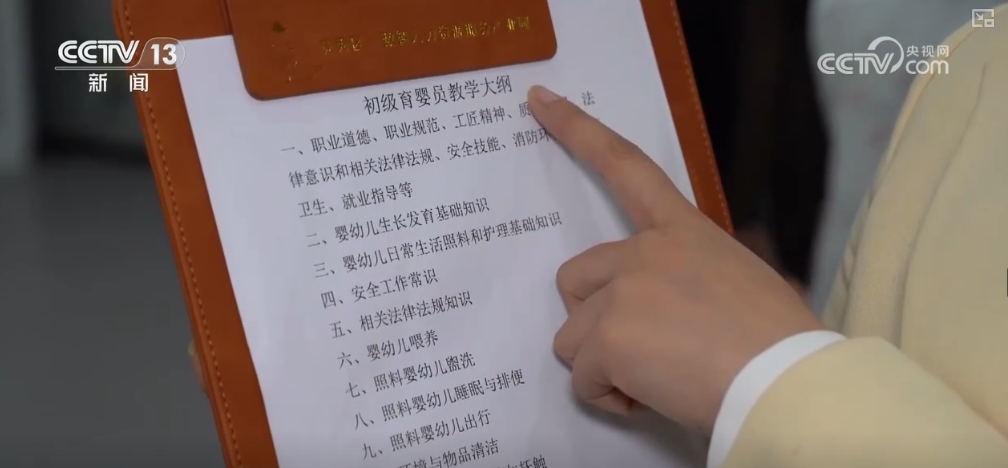 CCTV 13
新闻
央视网
CCTV.com
初级育婴员教学大纲
一、职业道德、职业规范、工匠精神、质 法
律意识和相关法律法规、安全技能、消防环
卫生、就业指导等
二、婴幼儿生长发育基础知识
三、婴幼儿日常生活照料和护理基础知识
四、安全工作常识
五、相关法律法规知识
六、婴幼儿喂养
七、照料婴幼儿盥洗
八、照料婴幼儿睡眠与排便
九、照料婴幼儿出行
环境与物品清洁
抚触